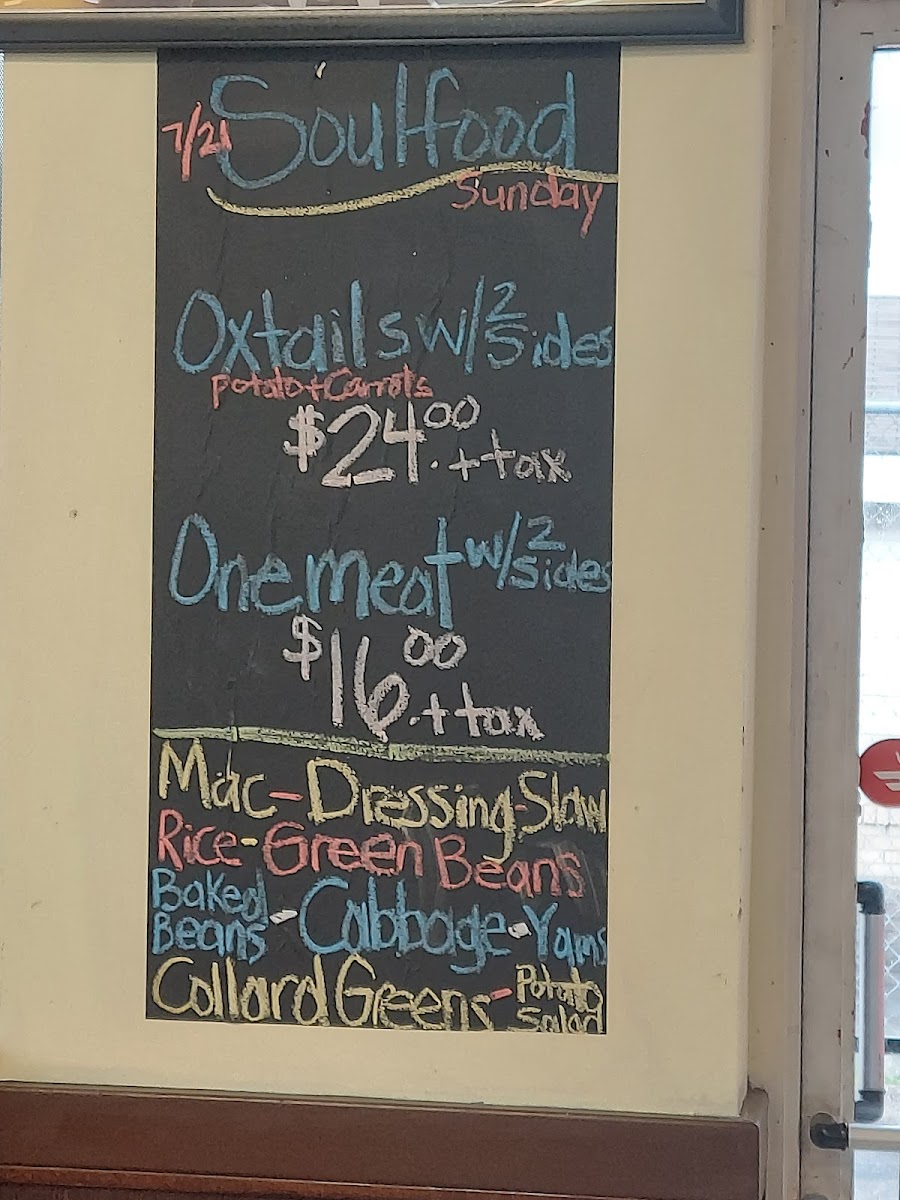 7/21 Soulfood
Sunday
Oxtails w/ 2 Sides
potato + Carrots
$24.00 + tax
One meat w/ 2 Sides
$16.00 + tax
Mac - Dressing - Slaw
Rice - Green Beans
Baked Beans - Cabbage - Yams
Collard Greens - Potato Salad